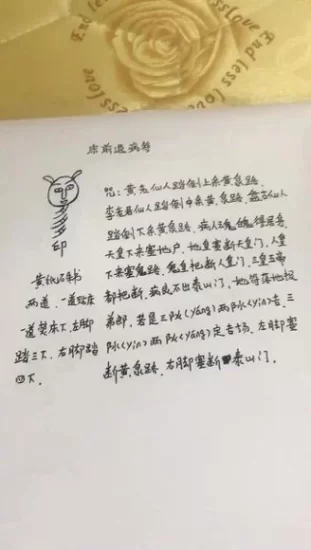 End less love
End less love
End less love
床前退病符
咒：黄老仙人踏倒上来黄泉路
李老君仙人踏倒中来黄泉路，盘古仙人
踏倒下来黄泉路，病人三魂七魄得居安
天皇下来塞地户，地皇塞断天皇门，人皇
下来塞鬼路，鬼皇把断人皇门，三皇五帝
都把断，病良不出泰山门，地符落地报
弟郎，若是三阝(yáng)两阝(yin)吉，三
阝(yin)两阝(yáng)定吉场，左脚塞
断黄泉路，右脚塞断泰山门。
印
黄纸硃书
两道，一道贴床
一道焚床下，左脚
踏三下，右脚踏
四下。